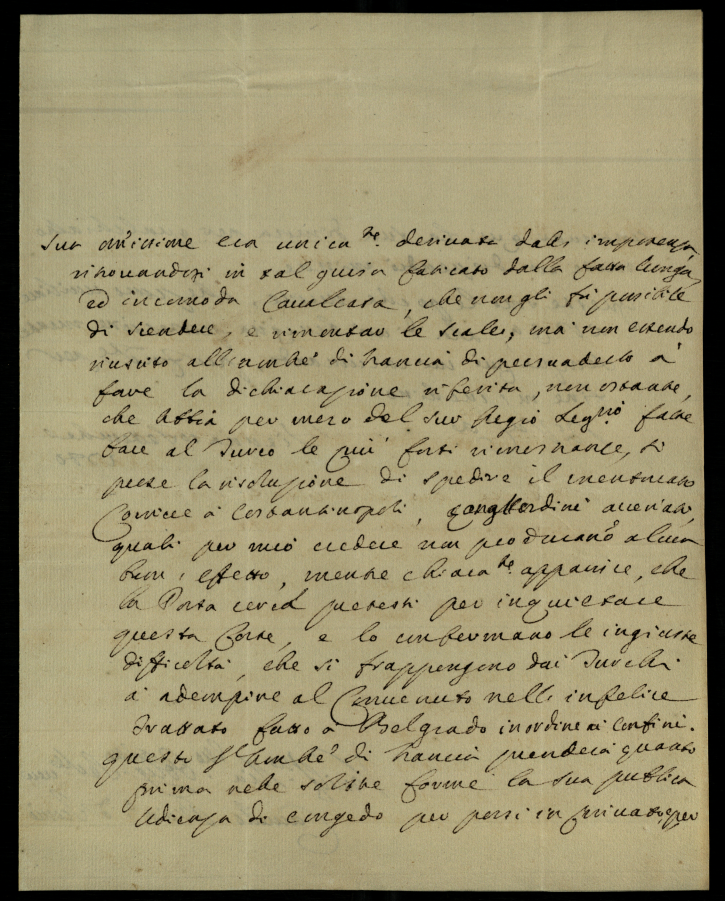 Sua omissione era unica.te derivata dalla impotenza
ritrouandosi in tal guisa faticato dalla fatta lunga,
ed incomoda Caualcata, che non gli fù possibile
di scendere, e rimontar le scale, mà non essendo
riuscito all'Amb.e di Francia di persuaderlo à
fare la dichiarazione riferita, non ostante,
che abbia per mezzo del suo Regio Seg.rio fatte
fare al Turco le più forti rimostranze, si
prese la risoluzione di spedire il mentouato
Corriere à Costantinopoli, cogl'ordini accennati,
quali per mio credere non produrano alcun
buon effetto, mentre chiara.te apparisce, che
la Porta cerca pretesti per inquietare
questa Corte, e lo confermano le ingiuste
difficoltà, che si frappongono dai Turchi
à adempire al Conuenuto nell' infelice
Trattato fatto a Belgrado in ordine ai Confini.
questo S.r Amb.e di Francia prenderà quanto
prima nelle solite forme la sua publica
Udienza di congedo per porsi in priuato, e per